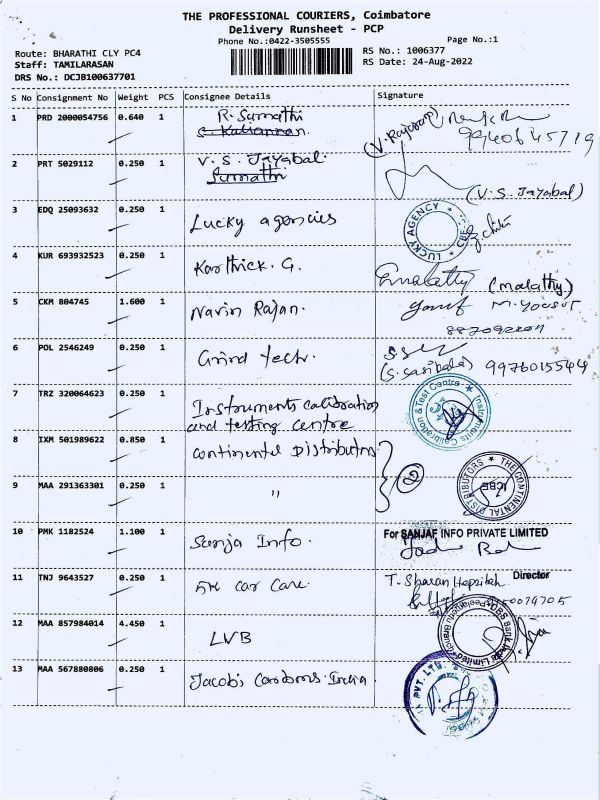 THE PROFESSIONAL COURIERS, Coimbatore
Delivery Runsheet - PCP
Phone No.:0422-3505555
Page No.:1
Route: BHARATHI CLY PC4
RS No.: 1006377
Staff: TAMILARASAN
RS Date: 24-Aug-2022
DRS No.: DCJB100637701
S No Consignment No Weight PCS Consignee Details Signature
1 PRD 2000054756 0.640 1 R. Sumathi
S. Kaliannan.
(V. Rajesh)
2 PRT 5029112 0.250 1 V. S. Jayabal.
Sumathi
(V. S. Jayabal)
3 EDQ 25093632 0.250 1 Lucky agencies
LUCKY AGENCY * CBE *
4 KUR 693932523 0.250 1 Karthick. G.
Smalathy (malathy)
5 CKM 804745 1.600 1 Navin Rajan.
M. Yousuf
6 POL 2546249 0.250 1 Grind tech.
(S. Sasibala) 9976015544
7 TRZ 320064623 0.250 1 Instruments calibration
and testing centre
Instruments Calibration & Test Centre
8 IXM 501989622 0.850 1 continental Distributors
2
THE CONTINENTAL DISTRIBUTORS * CBE
9 MAA 291363301 0.250 1 "
10 PMK 1182524 1.100 1 Sanja Info.
For SANJAF INFO PRIVATE LIMITED
Director
11 TNJ 9643527 0.250 1 5K car care.
T. Sharan Hepzibah
12 MAA 857984014 4.450 1 LVB
DBS Bank India Limited
13 MAA 567880806 0.250 1 Jacobi Carbons India
PVT. LTD.